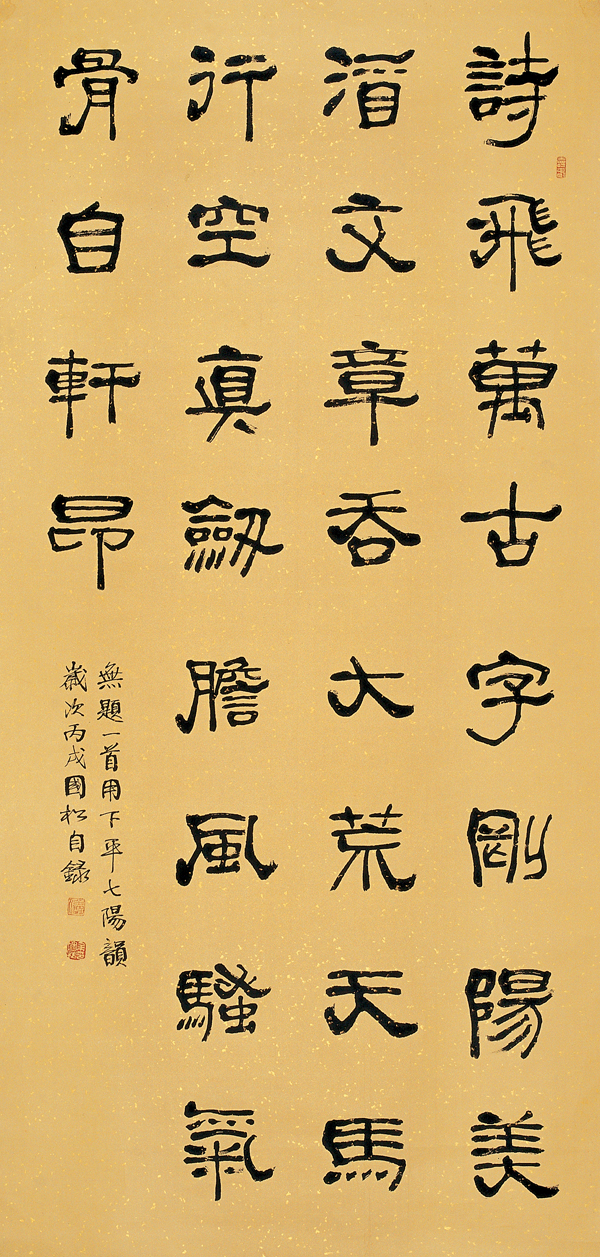 詩飛萬古字剛陽美
酒文章吞大荒天馬
行空真劒膽風騷氣
骨自軒昂
無題一首用下平七陽韻
歲次丙戌國松自録